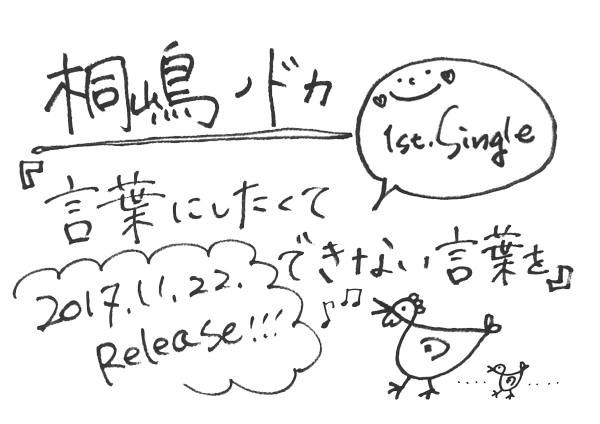 桐嶋ノドカ
1st.Single
『言葉にしたくて
できない言葉を』
2017.11.22.
Release!!!